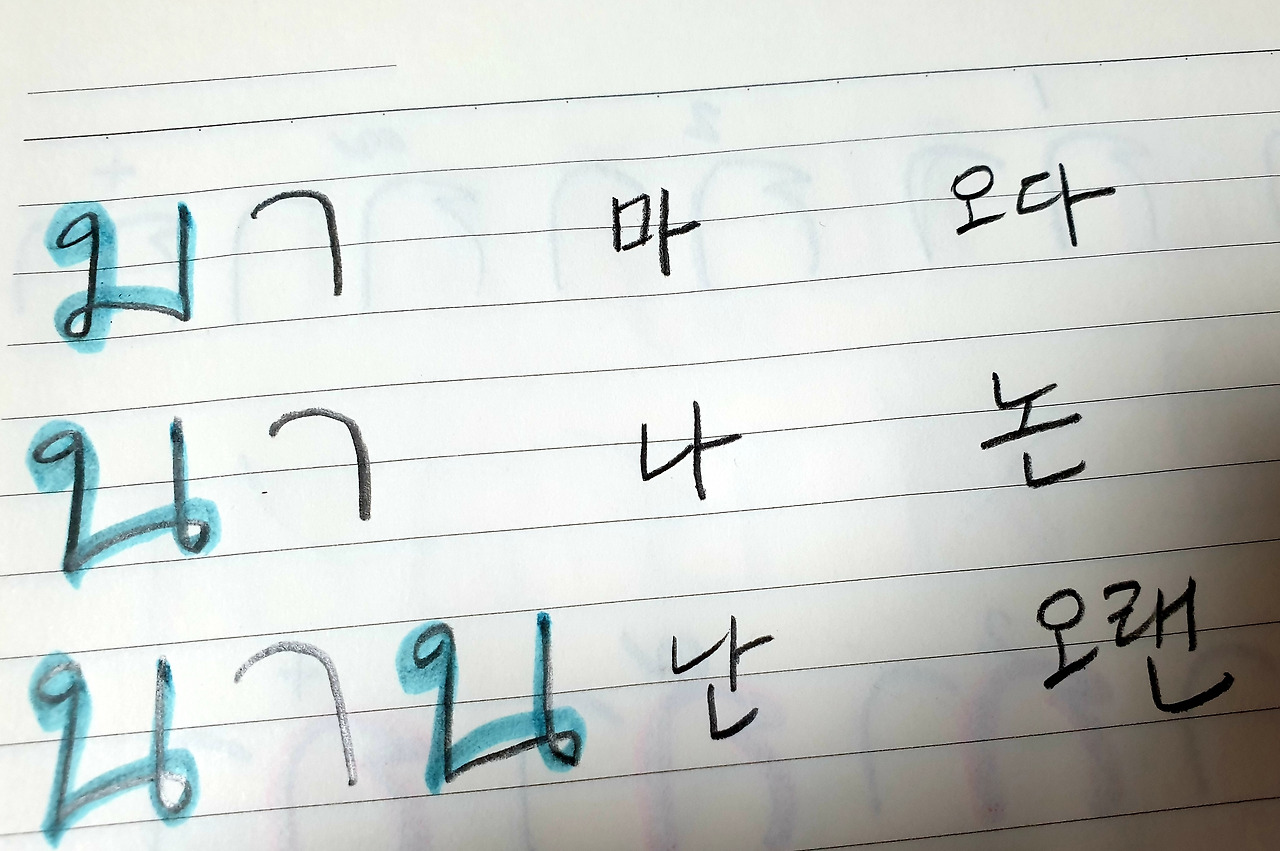 มา 마 오다
นา 나 논
นาน 난 오랜